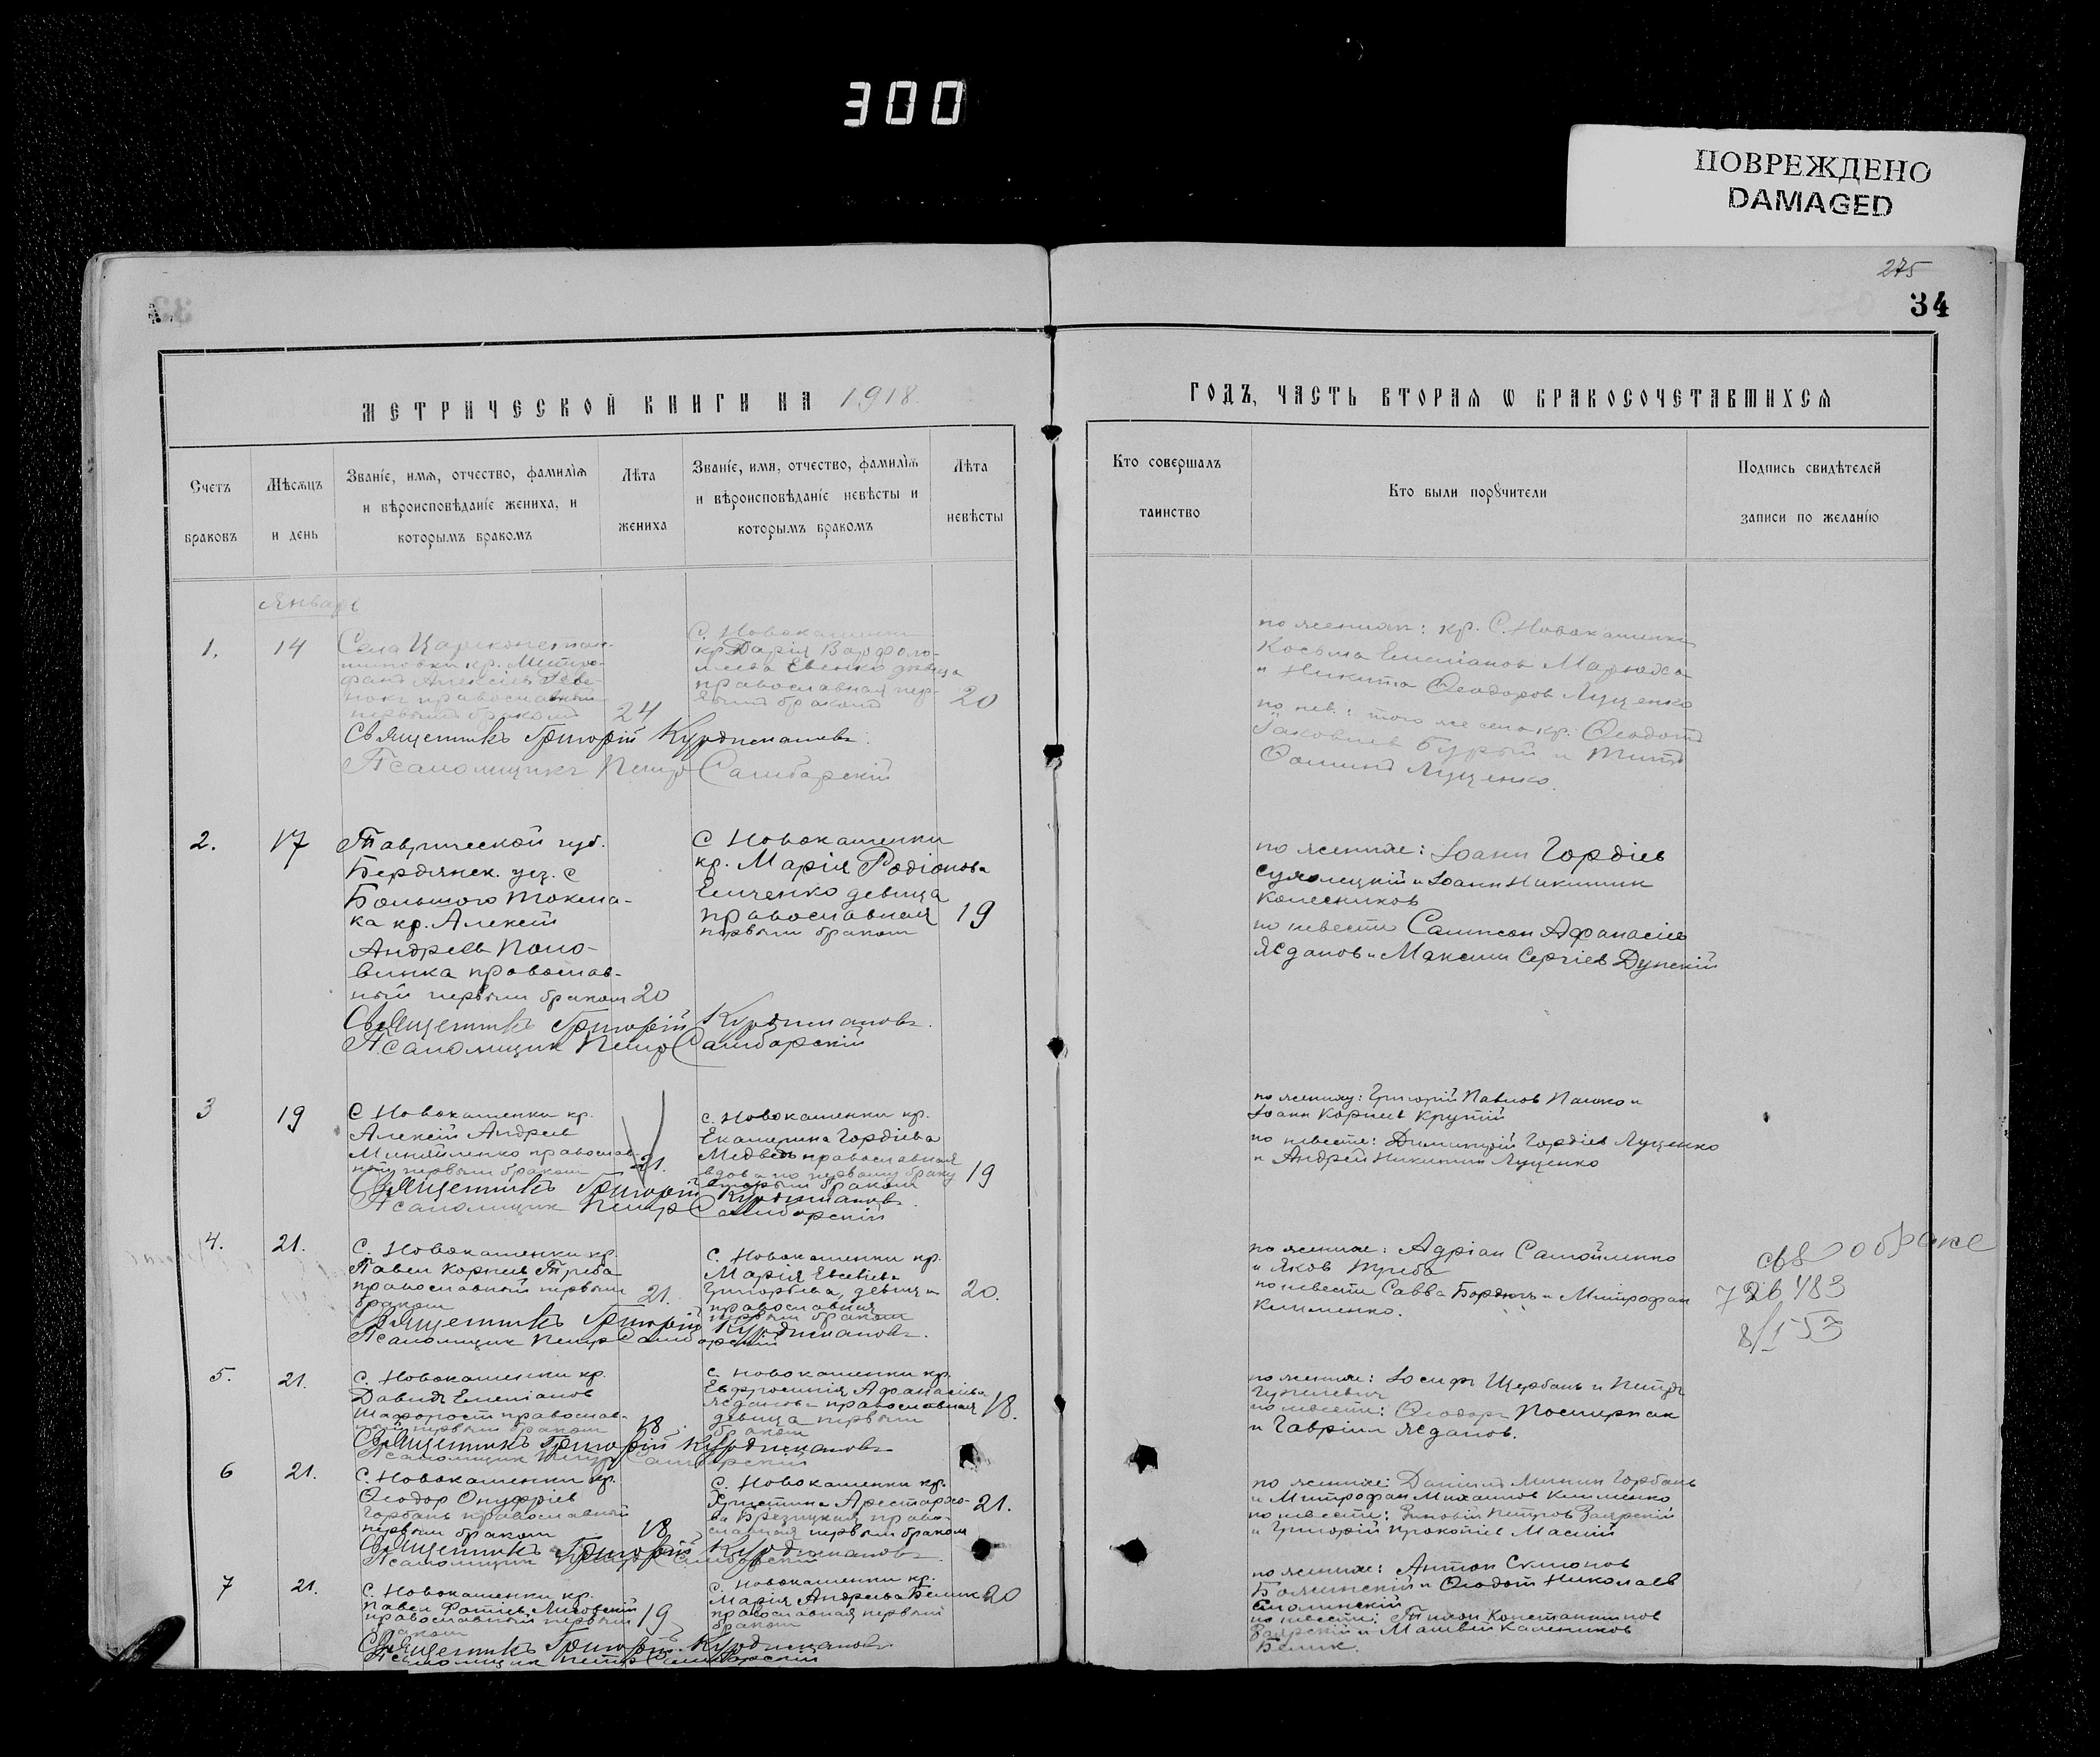 300
ПОВРЕЖДЕНО
DAMAGED
275
34
МЕТРИЧЕСКОЙ КНИГИ НА 1918.
ГОДЪ, ЧАСТЬ ВТОРАЯ Ѡ БРАКОСОЧЕТАВШИХСЯ
Счетъ
браковъ
Мѣсяцъ
и день
Званіе, имя, отчество, фамилія
и вѣроисповѣданіе жениха, и
которымъ бракомъ
Лѣта
жениха
Званіе, имя, отчество, фамилія
и вѣроисповѣданіе невѣсты и
которымъ бракомъ
Лѣта
невѣсты
Кто совершалъ
таинство
Кто были порꙋчители
Подпись свидѣтелей
записи по желанію
Январь
1.
14
Села
кр. Митро-
фанъ Алексіевъ
православный
первымъ бракомъ
24
С. Новокаменки
кр. Дарія Варфоло-
меева Евенко дѣвица
православная пер-
вымъ бракомъ
20
Священникъ Григорій Курдиманов.
Псаломщикъ Петр Самбарскій
по жениху: кр. С. Новокаменки
Косьма Емеліанов
и Никита Ѳеодоров Луценко
по нев.: того же села кр. Ѳеодотъ
Іаковлев Бурый и Титъ
Ѳомин Луценко.
2.
17
Таврической губ.
Бердянск. уез. с
Большого Токма-
ка кр. Алексій
Андреев Поло-
винка православ-
ный первым браком 20
С Новокаменки
кр. Марія Родіонова
Емченко девица
православная
первым браком
19
Священникъ Григорій Курдиманов.
Псаломщик Петр Самбарскій
по жениху: Іоанн Гордіев
и Іоанн Никитин
Колесников
по невесте Сампсон Афанасіев
Жданов и Максим Сергіев Дунскій
3
19
С Новокаменки кр.
Алексій Андреев
православ-
ный первым браком
21.
С. Новокаменки кр.
Екатерина Гордіева
Медведь православная
вдова по первому браку
вторым браком
19
Священникъ Григорій Курдиманов.
Псаломщик Петр Самбарскій
по жениху: Григорій Павлов Пашко и
Іоанн Корнеев Крутій
по невесте: Димитрій Гордіев Луценко
и Андрей Никитин Луценко
4.
21.
С. Новокаменки кр.
Павел Корнеев Треба
православный первым
браком
21.
С. Новокаменки кр.
Марія Евсевіева
Григорьева, девица
православная
первым браком
20.
Священникъ Григорій Курдиманов.
Псаломщик Петр Самбарскій
по жениху: Адріан Самойленко
и Яков Треба
по невесте Савва и Митрофан
Клименко.
св о браке
726483
8/I 53
5.
21.
С. Новокаменки кр.
Давидъ Емеліанов
Шафорост православ-
ный первым браком
18.
С. Новокаменки кр.
Евфросинія Афанасіева
Жданова православная
девица первым
браком
18.
Священникъ Григорій Курдиманов
Псаломщик Петр Самбарскій
по жениху: Іосифъ Щербань и Петръ
по невесте: Ѳеодоръ Постернак
и Гавріил Жданов.
6
21.
С. Новокаменки кр.
Ѳеодор Онуфріев
Горбань православный
первым браком
18.
С. Новокаменки кр.
Христина Арестархо-
ва право-
славная первым браком
21.
Священникъ Григорій Курдиманов
Псаломщик Петр Самбарскій
по жениху: Даніил Минин Горбань
и Митрофан Михаилов Клименко
по невесте: Зиновій Петров Заярскій
и Григорій Прокопіев Масній
7
21.
С. Новокаменки кр.
Павел Фотіев Лисовскій
православный первым
браком
19
С. Новокаменки кр.
Марія Андреева Белик
православная первым
браком
20
Священникъ Григорій Курдиманов
Псаломщик Петр Самбарскій
по жениху: Антон Симонов
и Ѳеодот Николаев
Смолинскій
по невесте: Тихон Константинов
Заярскій и Матвей Калеников
Белик.